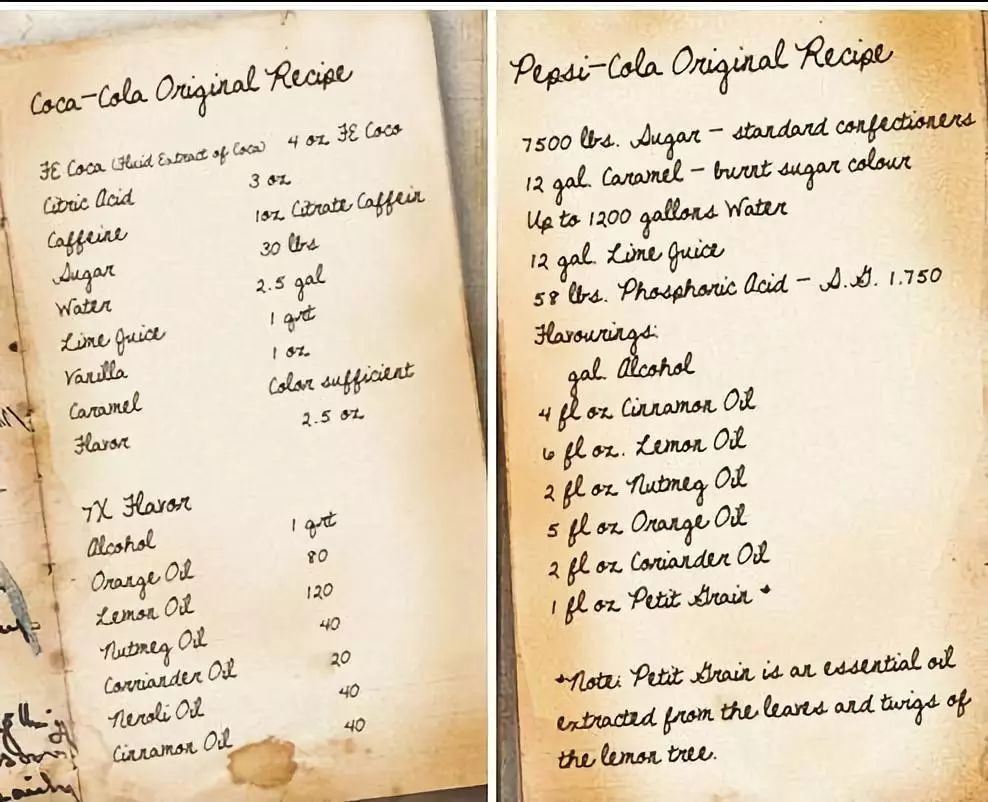 Coca-Cola Original Recipe
FE Coca (Fluid Extract of Coca) 4 oz FE Coco
Citric Acid 3 oz
Caffeine 1oz Citrate Caffein
Sugar 30 lbs
Water 2.5 gal
Lime Juice 1 qrt
Vanilla 1 oz
Caramel Color sufficient
Flavor 2.5 oz
7X Flavor
Alcohol 1 qrt
Orange Oil 80
Lemon Oil 120
Nutmeg Oil 40
Corriander Oil 20
Neroli Oil 40
Cinnamon Oil 40
Pepsi-Cola Original Recipe
7500 lbs. Sugar - standard confectioners
12 gal. Caramel - burnt sugar colour
Up to 1200 gallons Water
12 gal. Lime Juice
58 lbs. Phosphoric Acid - S.G. 1.750
Flavourings:
gal. Alcohol
4 fl oz Cinnamon Oil
6 fl oz. Lemon Oil
2 fl oz Nutmeg Oil
5 fl oz Orange Oil
2 fl oz Coriander Oil
1 fl oz Petit Grain *
*Note: Petit Grain is an essential oil
extracted from the leaves and twigs of
the lemon tree.